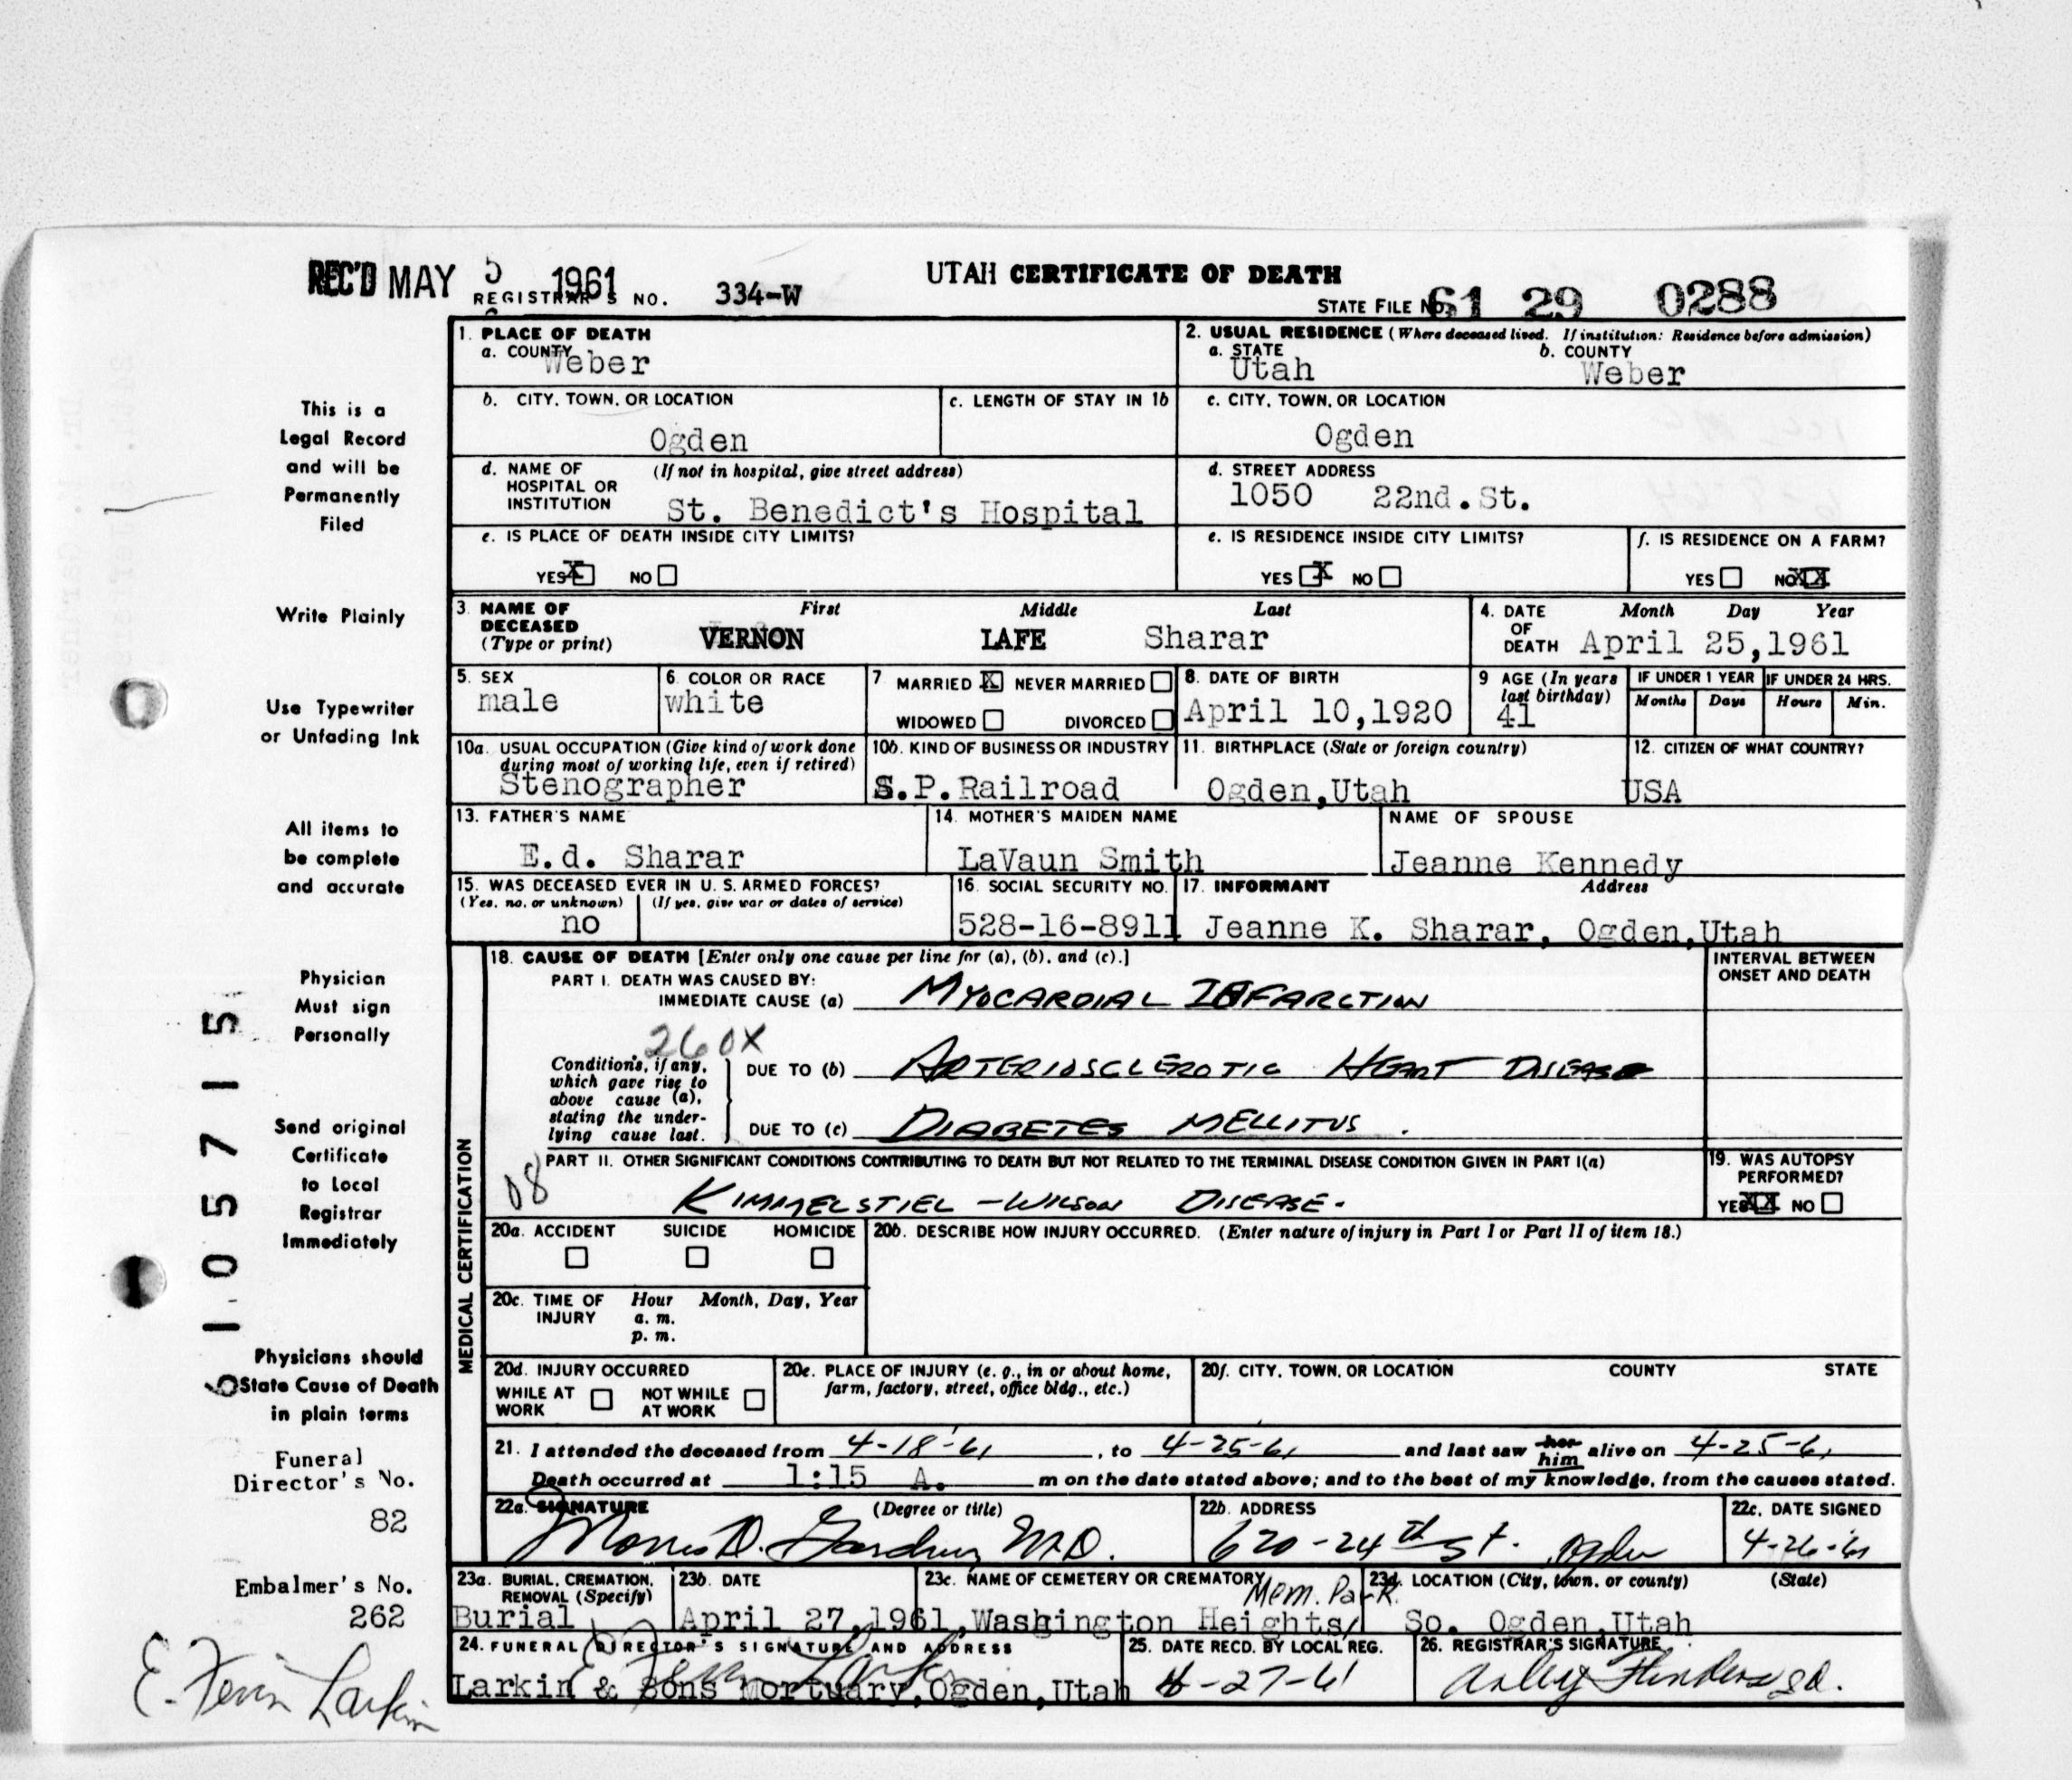 REC'D MAY 5 1961
UTAH CERTIFICATE OF DEATH
REGISTRAR'S NO. 334-W
STATE FILE NO. 61 29 0288
1. PLACE OF DEATH
a. COUNTY
Weber
2. USUAL RESIDENCE (Where deceased lived. If institution: Residence before admission)
a. STATE b. COUNTY
Utah Weber
b. CITY, TOWN, OR LOCATION
Ogden
c. LENGTH OF STAY IN 1b
c. CITY, TOWN, OR LOCATION
Ogden
d. NAME OF HOSPITAL OR INSTITUTION (If not in hospital, give street address)
St. Benedict's Hospital
d. STREET ADDRESS
1050 22nd. St.
e. IS PLACE OF DEATH INSIDE CITY LIMITS?
YES X NO
e. IS RESIDENCE INSIDE CITY LIMITS?
YES X NO
f. IS RESIDENCE ON A FARM?
YES NO XX
3. NAME OF DECEASED (Type or print) First Middle Last
VERNON LAFE Sharar
4. DATE OF DEATH Month Day Year
April 25,1961
5. SEX
male
6. COLOR OR RACE
white
7 MARRIED X NEVER MARRIED
WIDOWED DIVORCED
8. DATE OF BIRTH
April 10,1920
9 AGE (In years last birthday)
41
IF UNDER 1 YEAR IF UNDER 24 HRS.
Months Days Hours Min.
10a. USUAL OCCUPATION (Give kind of work done during most of working life, even if retired)
Stenographer
10b. KIND OF BUSINESS OR INDUSTRY
S.P.Railroad
11. BIRTHPLACE (State or foreign country)
Ogden,Utah
12. CITIZEN OF WHAT COUNTRY?
USA
13. FATHER'S NAME
E.d. Sharar
14. MOTHER'S MAIDEN NAME
LaVaun Smith
NAME OF SPOUSE
Jeanne Kennedy
15. WAS DECEASED EVER IN U. S. ARMED FORCES?
(Yes, no, or unknown) (If yes, give war or dates of service)
no
16. SOCIAL SECURITY NO.
528-16-8911
17. INFORMANT Address
Jeanne K. Sharar, Ogden,Utah
MEDICAL CERTIFICATION
18. CAUSE OF DEATH [Enter only one cause per line for (a), (b), and (c).]
INTERVAL BETWEEN ONSET AND DEATH
PART I. DEATH WAS CAUSED BY:
IMMEDIATE CAUSE (a) MYOCARDIAL INFARCTION
260X
Conditions, if any, which gave rise to above cause (a), stating the underlying cause last.
DUE TO (b) ARTERIOSCLEROTIC HEART DISEASE
DUE TO (c) DIABETES MELLITUS.
08
PART II. OTHER SIGNIFICANT CONDITIONS CONTRIBUTING TO DEATH BUT NOT RELATED TO THE TERMINAL DISEASE CONDITION GIVEN IN PART I(a)
KIMMELSTIEL-WILSON DISEASE.
19. WAS AUTOPSY PERFORMED?
YES XX NO
20a. ACCIDENT SUICIDE HOMICIDE
20b. DESCRIBE HOW INJURY OCCURRED. (Enter nature of injury in Part I or Part II of item 18.)
20c. TIME OF INJURY Hour Month, Day, Year
a. m.
p. m.
20d. INJURY OCCURRED
WHILE AT WORK NOT WHILE AT WORK
20e. PLACE OF INJURY (e. g., in or about home, farm, factory, street, office bldg., etc.)
20f. CITY, TOWN, OR LOCATION COUNTY STATE
21. I attended the deceased from 4-18-61, to 4-25-61 and last saw her him alive on 4-25-61
Death occurred at 1:15 A. m on the date stated above; and to the best of my knowledge, from the causes stated.
22a. SIGNATURE (Degree or title)
Morris D. Gardner M.D.
22b. ADDRESS
620-24th St. Ogden
22c. DATE SIGNED
4-26-61
23a. BURIAL, CREMATION, REMOVAL (Specify)
Burial
23b. DATE
April 27,1961,
23c. NAME OF CEMETERY OR CREMATORY
Washington Heights/ Mem. Park
23d. LOCATION (City, town, or county) (State)
So. Ogden,Utah
24. FUNERAL DIRECTOR'S SIGNATURE AND ADDRESS
Larkin & Sons Mortuary,Ogden,Utah
25. DATE RECD. BY LOCAL REG.
4-27-61
26. REGISTRAR'S SIGNATURE
This is a
Legal Record
and will be
Permanently
Filed
Write Plainly
Use Typewriter
or Unfading Ink
All items to
be complete
and accurate
Physician
Must sign
Personally
Send original
Certificate
to Local
Registrar
Immediately
Physicians should
State Cause of Death
in plain terms
Funeral
Director's No.
82
Embalmer's No.
262
E. Larkin
6105715